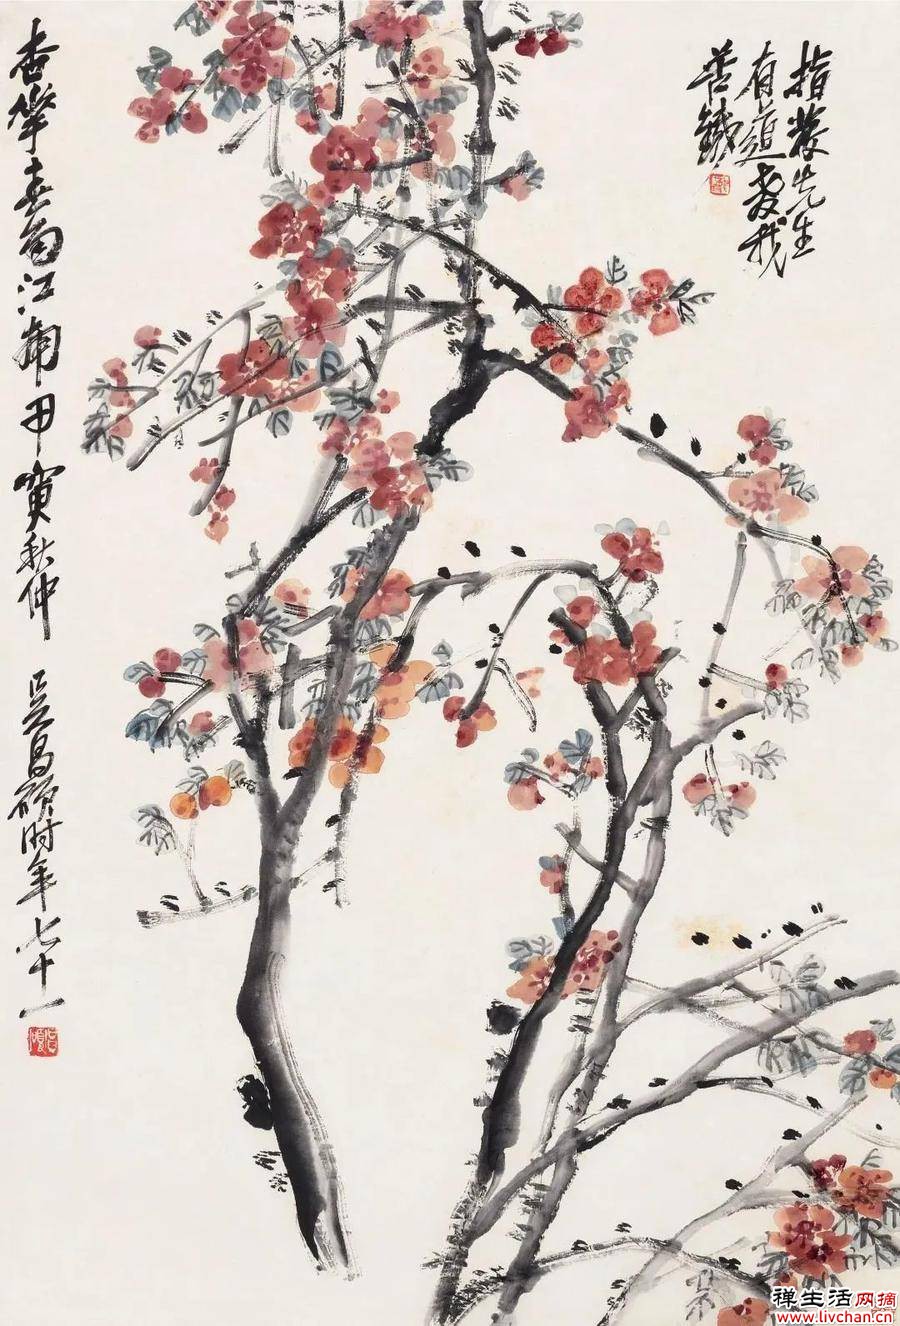 先生
有道教我
苦鐵
杏華春雨江南甲寅秋仲 吳昌碩时年七十一
禅生活网摘
www.livchan.cn